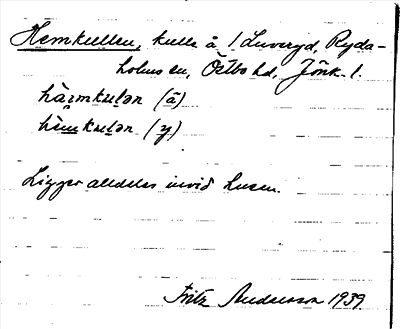 Hemkullen, kulle å 1 Luveryd, Ryda-
holms sn, Östbo hd, Jönk. l.
hä̀rmkulən (ä)
hèmkulən (y)
Ligger alldeles invid husen.
Fritz Andersson 1939.